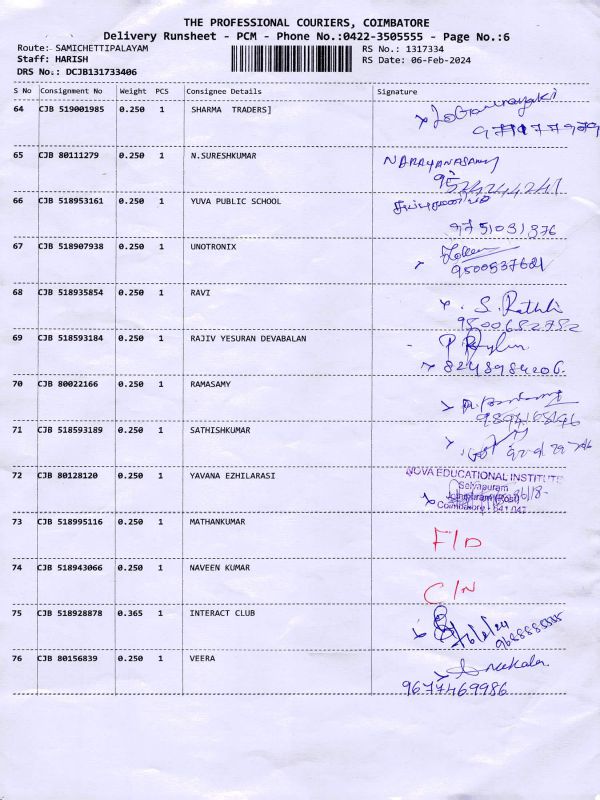 THE PROFESSIONAL COURIERS, COIMBATORE
Delivery Runsheet - PCM - Phone No.:0422-3505555 - Page No.:6
Route: SAMICHETTIPALAYAM
RS No.: 1317334
Staff: HARISH
RS Date: 06-Feb-2024
DRS No.: DCJB131733406
S No Consignment No Weight PCS Consignee Details Signature
64 CJB 519001985 0.250 1 SHARMA TRADERS]
65 CJB 80111279 0.250 1 N.SURESHKUMAR NARAYANASAMY
66 CJB 518953161 0.250 1 YUVA PUBLIC SCHOOL
9751031376
67 CJB 518907938 0.250 1 UNOTRONIX
9500537621
68 CJB 518935854 0.250 1 RAVI
S. Rathi
9500682782
69 CJB 518593184 0.250 1 RAJIV YESURAN DEVABALAN
8248984206.
70 CJB 80022166 0.250 1 RAMASAMY
71 CJB 518593189 0.250 1 SATHISHKUMAR
72 CJB 80128120 0.250 1 YAVANA EZHILARASI NOVA EDUCATIONAL INSTITUTE
Selvapuram
Coimbatore - 641 047
73 CJB 518995116 0.250 1 MATHANKUMAR
F/D
74 CJB 518943066 0.250 1 NAVEEN KUMAR
C/N
75 CJB 518928878 0.365 1 INTERACT CLUB
76 CJB 80156839 0.250 1 VEERA
9677469986